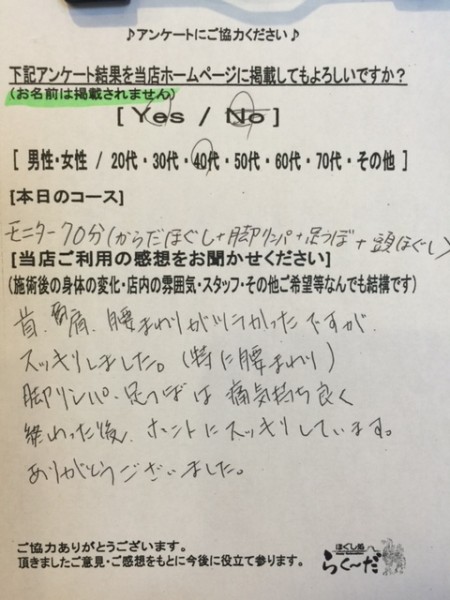 ♪アンケートにご協力ください♪
下記アンケート結果を当店ホームページに掲載してもよろしいですか？
(お名前は掲載されません)
[ Yes / No ]
[ 男性・女性 / 20代・30代・40代・50代・60代・70代・その他 ]
[本日のコース]
モニター70分(からだほぐし+脚リンパ+足つぼ+頭ほぐし)
[当店ご利用の感想をお聞かせください]
(施術後の身体の変化・店内の雰囲気・スタッフ・その他ご希望等なんでも結構です)
首、肩、腰まわりがツラかったですが、
スッキリしました。(特に腰まわり)
脚リンパ、足つぼは痛気持ち良く
終わった後、ホントにスッキリしています。
ありがとうございました。
ご協力ありがとうございます。
頂きましたご意見・ご感想をもとに今後に役立て参ります。
ほぐし処
らく〜だ